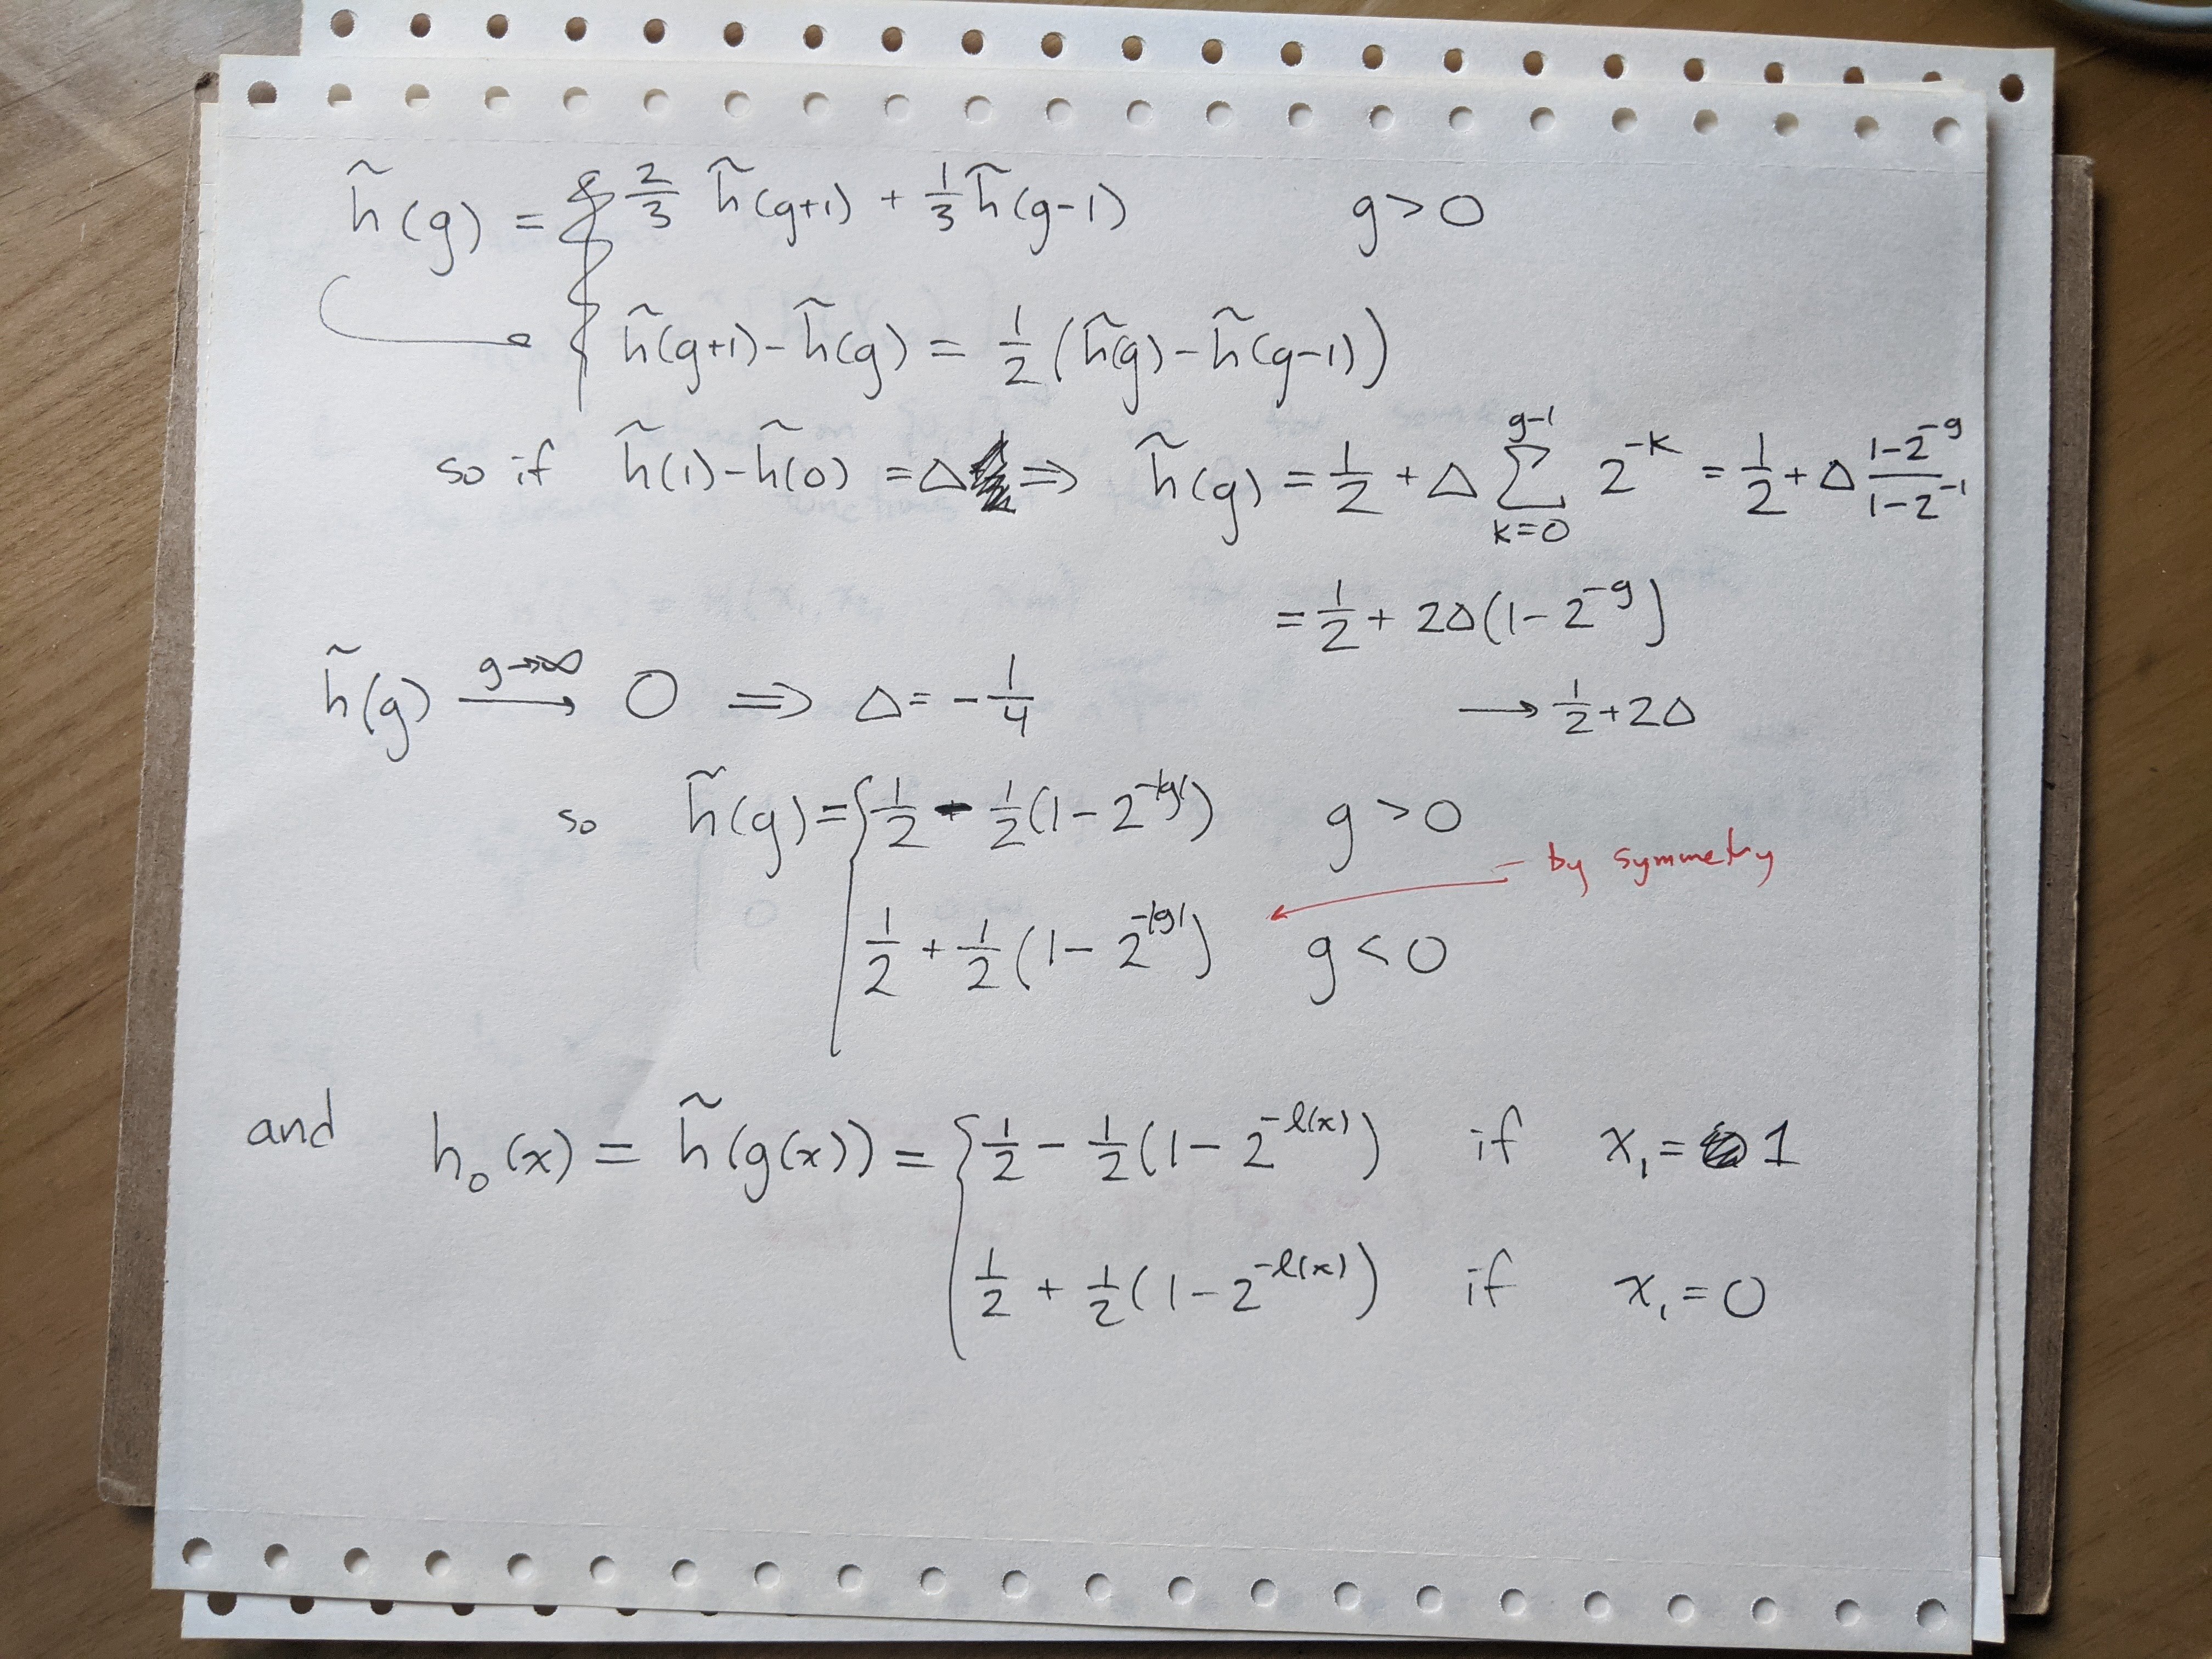 h̃(g) = { 2/3 h̃(g+1) + 1/3 h̃(g-1) g>0
h̃(g+1) - h̃(g) = 1/2 (h̃(g) - h̃(g-1))
so if h̃(1) - h̃(0) = Δ ⇒ h̃(g) = 1/2 + Δ ∑_{k=0}^{g-1} 2^{-k} = 1/2 + Δ (1-2^{-g})/(1-2^{-1})
= 1/2 + 2Δ(1-2^{-g})
h̃(g) →^{g→∞} 0 ⇒ Δ = -1/4 → 1/2 + 2Δ
so h̃(g) = { 1/2 - 1/2(1-2^{-|g|}) g > 0
- by symmetry
1/2 + 1/2(1-2^{-|g|}) g < 0
and h₀(x) = h̃(g(x)) = { 1/2 - 1/2(1-2^{-ℓ(x)}) if x₁ = 1
1/2 + 1/2(1-2^{-ℓ(x)}) if x₁ = 0